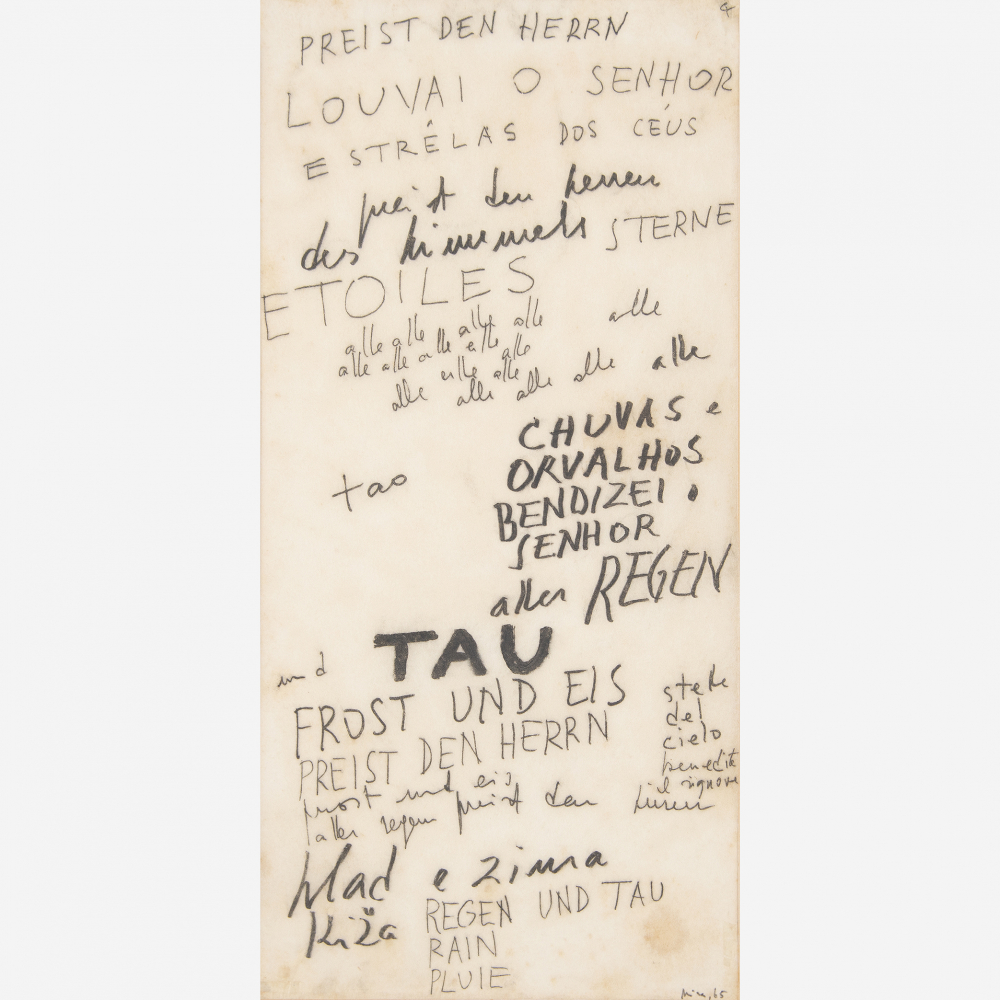 4
PREIST DEN HERRN
LOUVAI O SENHOR
ESTRÊLAS DOS CÉUS
preist den herren
des himmels STERNE
ETOILES
alle alle alle alle alle
alle alle alle alle alle
alle alle alle
alle alle alle alle alle
CHUVAS e
ORVALHOS
tao
BENDIZEI o
SENHOR
aller REGEN
TAU
und
FROST UND EIS
stelle
del
cielo
benedite
il signore
PREIST DEN HERRN
frost und eis
aller regen preist den
hlad e zima
kiža
REGEN UND TAU
RAIN
PLUIE